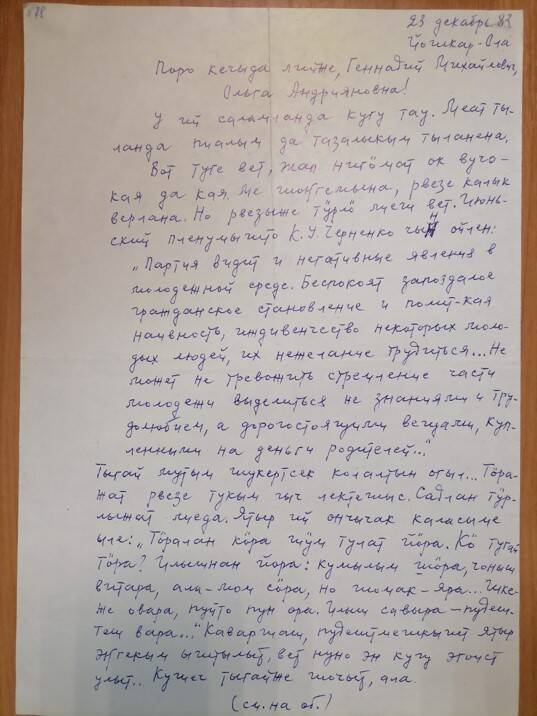 588
23 декабрь 83
Йошкар-Ола
Поро кечыда лийже, Геннадий Михайлович,
Ольга Андрияновна!
У ий саламланда кугу тау. Меат ты-
ланда пиалым да тазалыкым тыланена.
Вот туге вет, жап нигӧмат ок вучо-
кая да кая. Ме шоҥгемына, рвезе калык
верлана. Но рвезыже тӱрлӧ лиеш вет. Июнь-
ский пленумышто К.У. Черненко чын ойлен:
„Партия видит и негативные явления в
молодежной среде. Беспокоят запоздалое
гражданское становление и полит-кая
наивность, иждивенчество некоторых моло-
дых людей, их нежелание трудиться... Не
может не тревожить стремление части
молодежи выделиться не знаниями и тру-
долюбием, а дорогостоящими вещами, куп-
ленными на деньги родителей..."
Тыгай мутым шукертсек колалтын огыл... Тӧра-
жат рвезе тукым гыч лектешыс. Садлан тӱр-
лыжат лиеда. Ятыр ий ончычак каласыме
ыле: „Тӧралан кӧра шӱм тулат йӧра. Кӧ тугай
Тӧра? Илышнан йора: кумылым йӧра, чоныш
витара, ала-мом сӧра, но шомак - яра... Шке-
же овара, пуйто пун ора. Илыш савыра - пудеш-
теш вара..." Каваршаш, пудештмешкышт ятыр
эҥгекым ыштылыт, вет нуно эн кугу эгоист
улыт.. Кушеч тыгайже шочыт, ала.
(см. на об.)